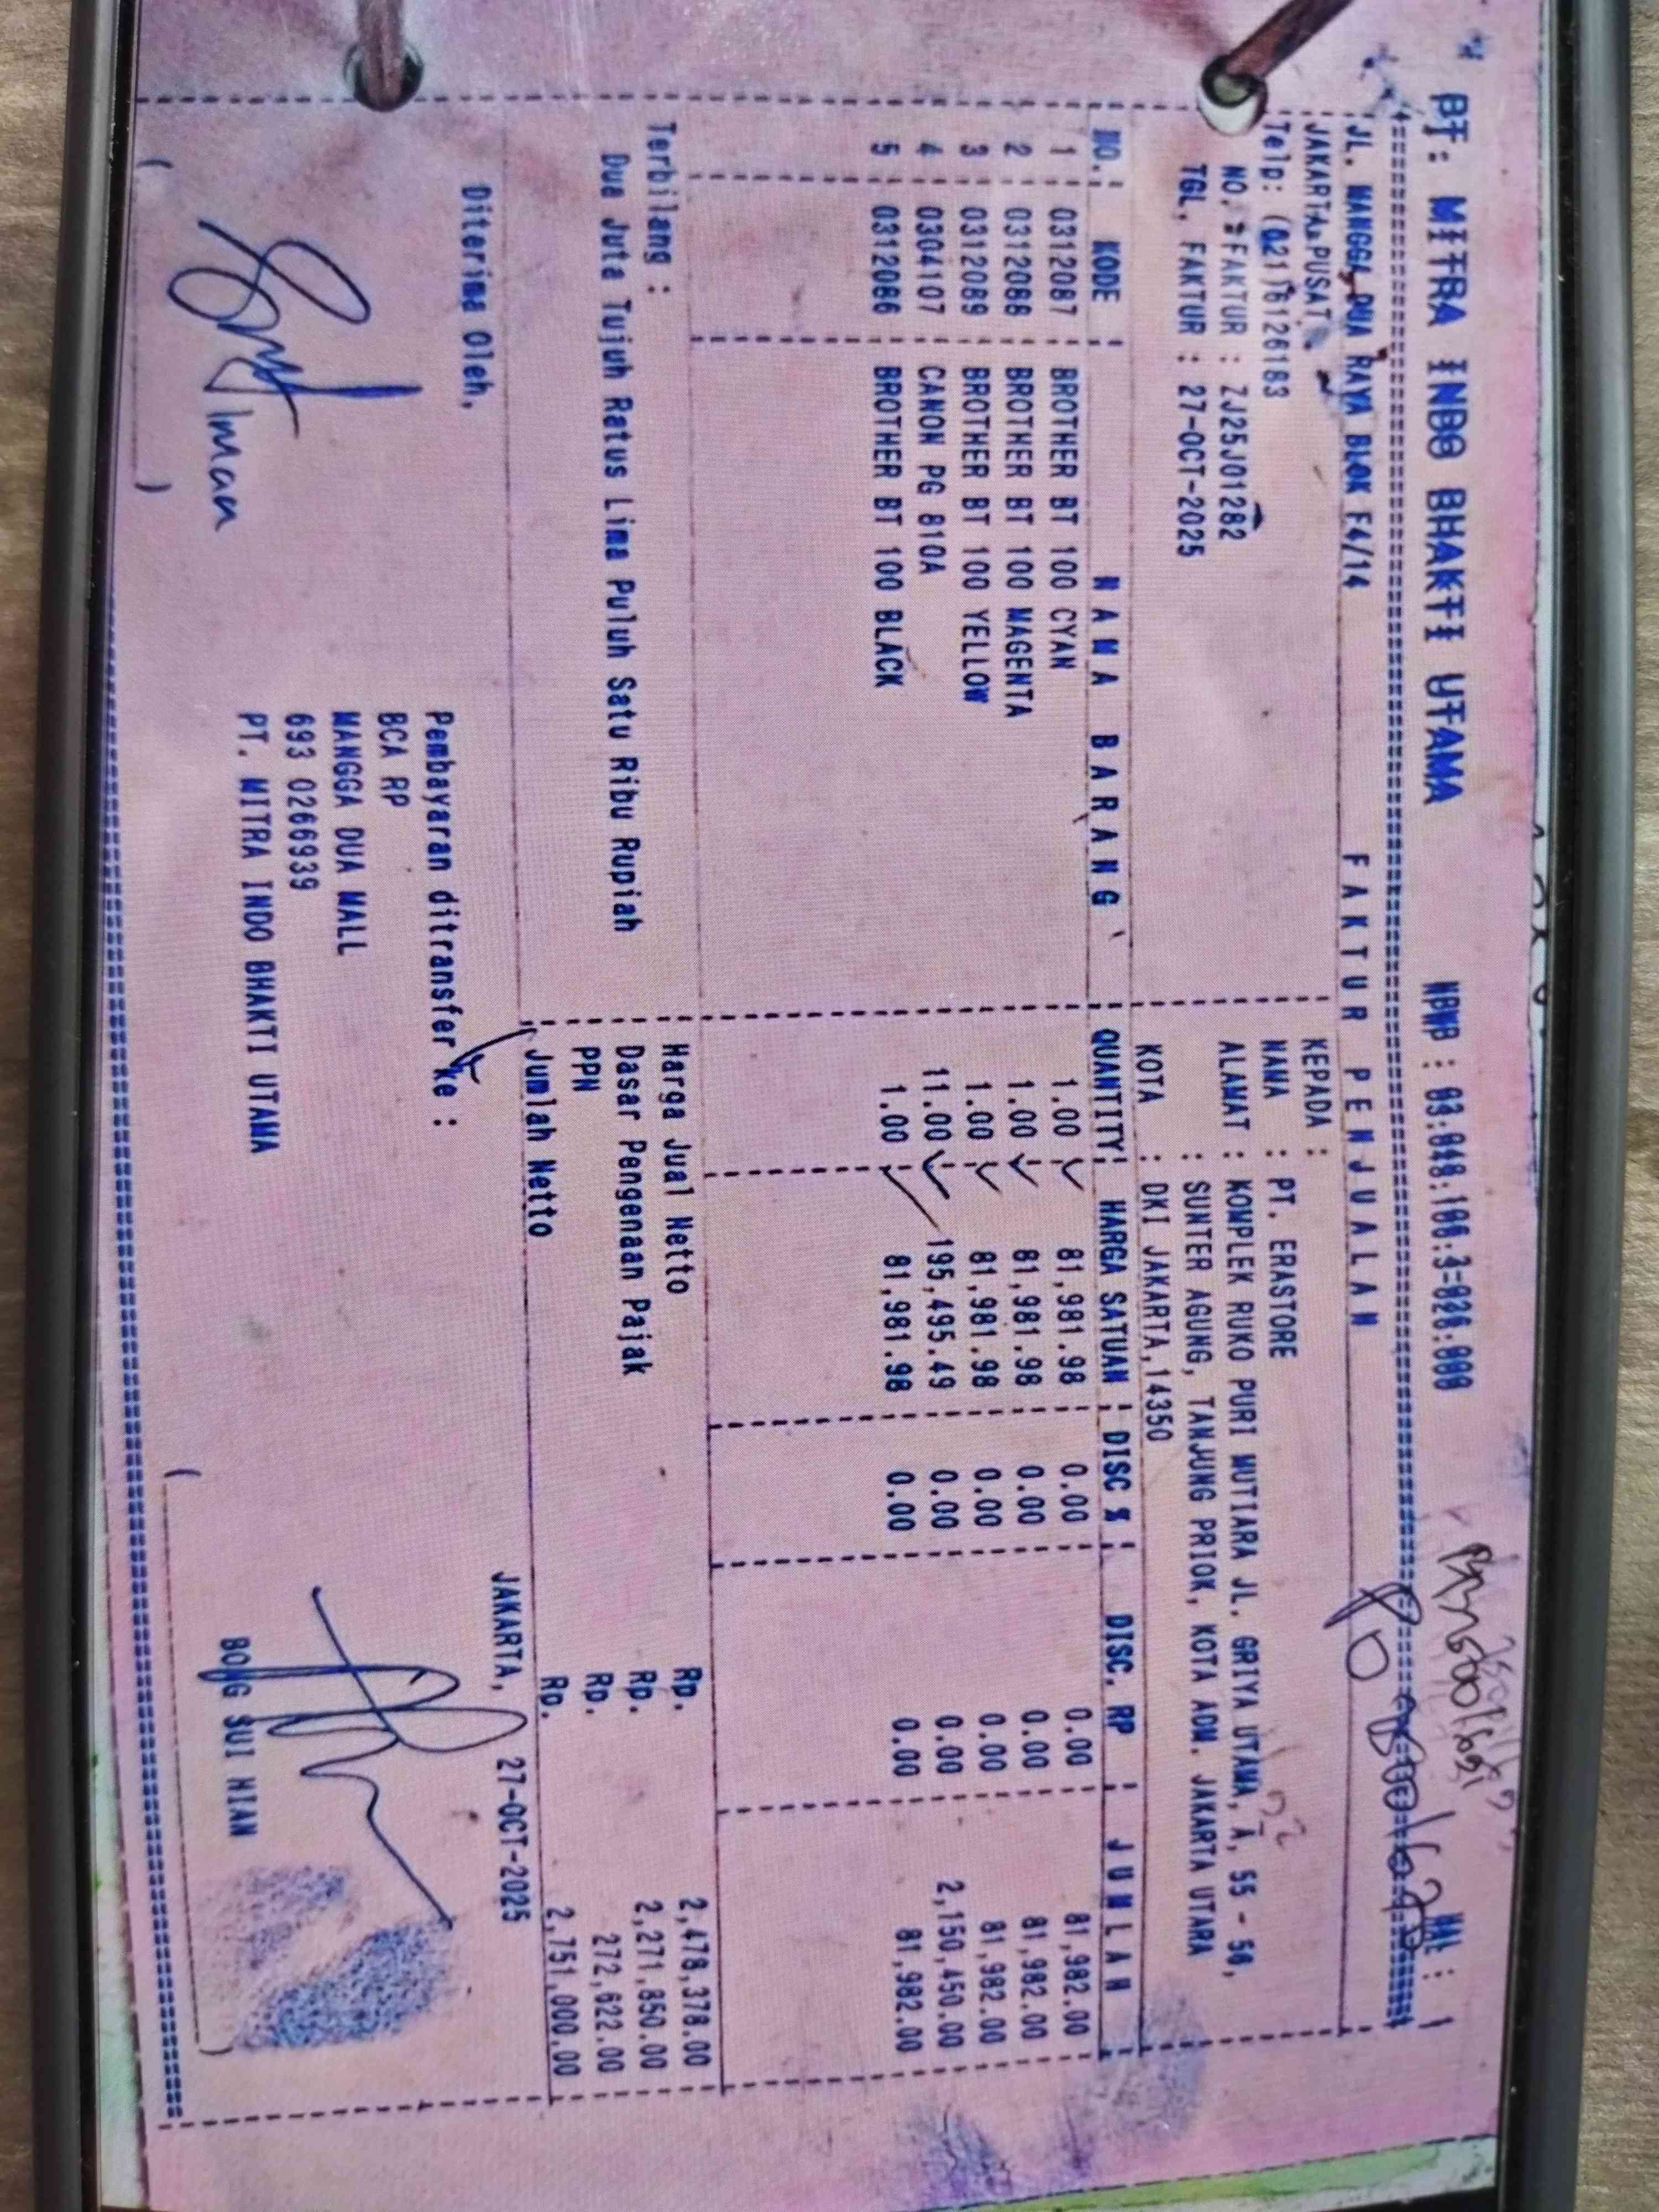 PT. MITRA INDO BHAKTI UTAMA NPWP : HAL : 1
JL. MANGGA DUA RAYA BLOK F4/14 FAKTUR PENJUALAN
JAKARTA PUSAT KEPADA :
Telp: (021)6126183 NAMA : PT. ERASTORE
NO. FAKTUR : ZJ25J01282 ALAMAT : KOMPLEK RUKO PURI MUTIARA JL. GRIYA UTAMA, A, 55 - 56,
TGL. FAKTUR : 27-OCT-2025 : SUNTER AGUNG, TANJUNG PRIOK, KOTA ADM. JAKARTA UTARA
KOTA : DKI JAKARTA,14350
NO. KODE NAMA BARANG QUANTITY HARGA SATUAN DISC % DISC. RP JUMLAH
1 0312087 BROTHER BT 100 CYAN 1.00 81,981.98 0.00 0.00 81,982.00
2 0312088 BROTHER BT 100 MAGENTA 1.00 81,981.98 0.00 0.00 81,982.00
3 0312089 BROTHER BT 100 YELLOW 1.00 81,981.98 0.00 0.00 81,982.00
4 0304107 CANON PG 810A 11.00 195,495.49 0.00 0.00 2,150,450.00
5 0312086 BROTHER BT 100 BLACK 1.00 81,981.98 0.00 0.00 81,982.00
Terbilang : Harga Jual Netto Rp. 2,478,378.00
Dua Juta Tujuh Ratus Lima Puluh Satu Ribu Rupiah Dasar Pengenaan Pajak Rp. 2,271,850.00
PPN Rp. 272,622.00
Jumlah Netto Rp. 2,751,000.00
Diterima Oleh, JAKARTA, 27-OCT-2025
Pembayaran ditransfer ke :
BCA RP
MANGGA DUA MALL
693 0266939
PT. MITRA INDO BHAKTI UTAMA
Iman
BONG SUI HIAN